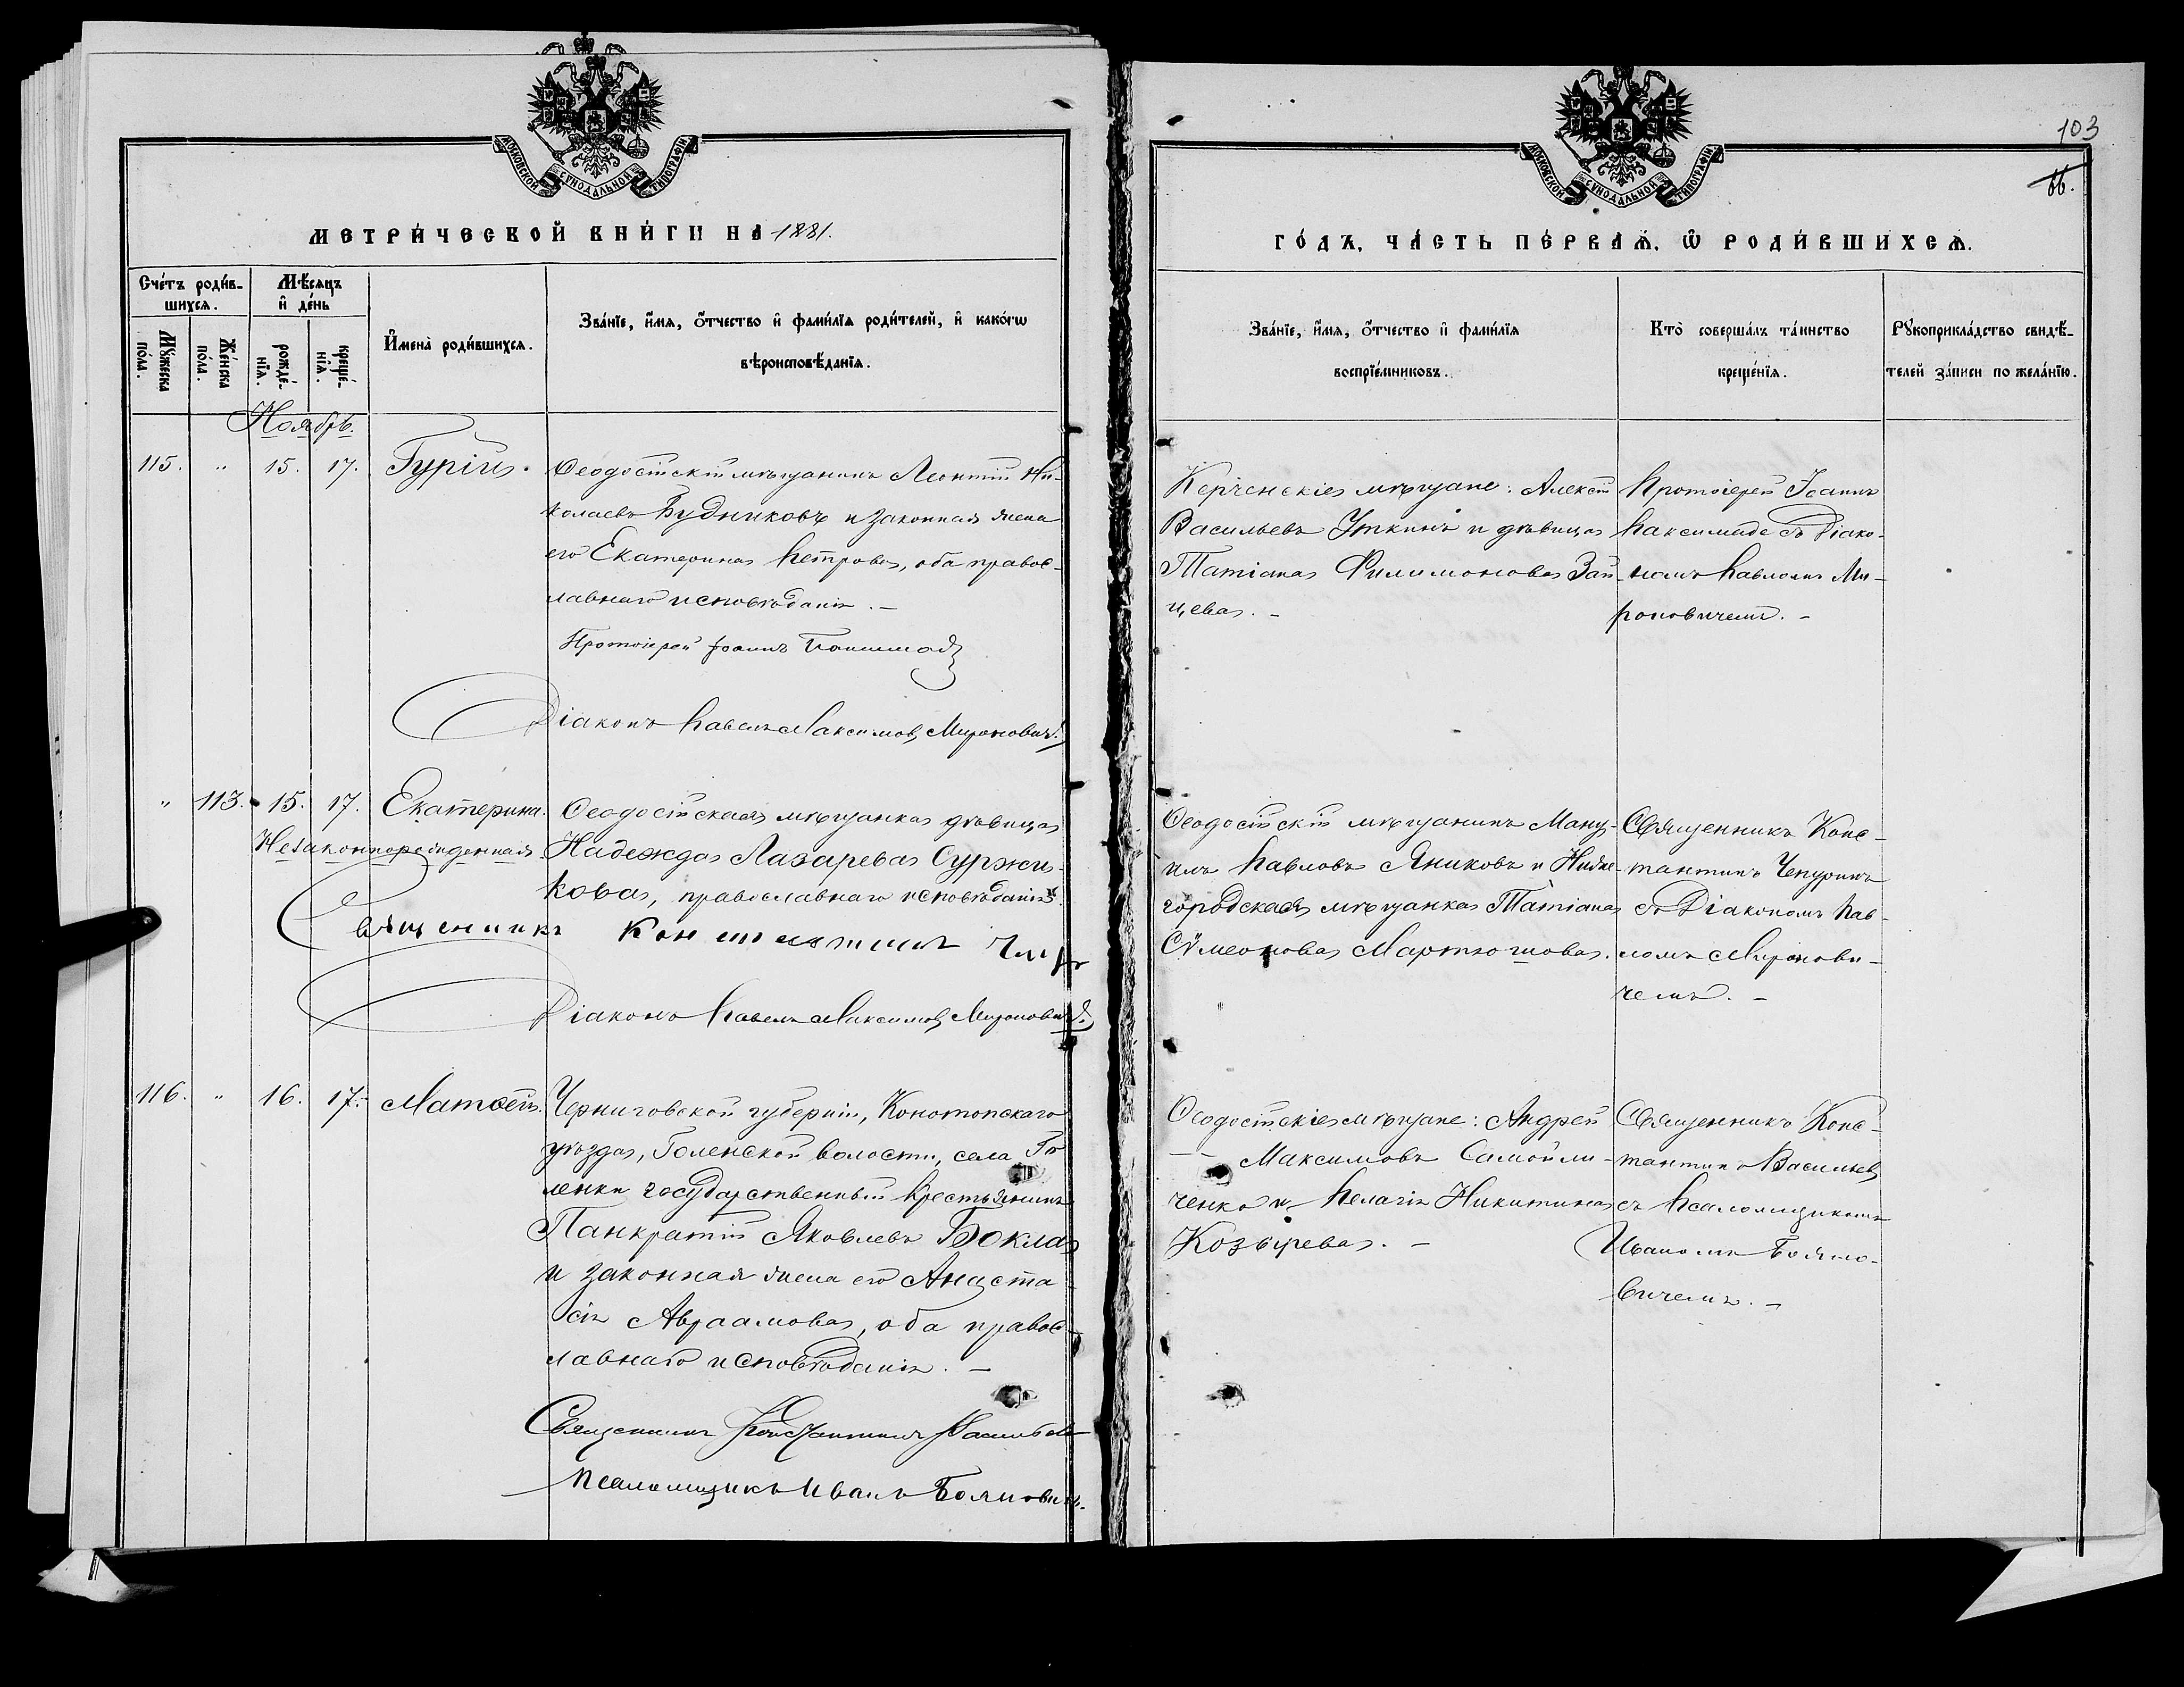 МОСКОВСКОЙ СѴНОДАЛЬНОЙ ТИПОГРАФІИ
МЕТРИ́ЧЕСКОЙ КНИ́ГИ НА 1881.
Сче́тъ роди́в-
шихсѧ.
Мѣ́сѧцъ
и҆ де́нь
Мꙋ́жеска
по́ла.
Же́нска
по́ла.
рожде́-
нїѧ.
креще́-
нїѧ.
И҆мена̀ роди́вшихсѧ.
Зва́нїе, и҆́мѧ, ѻ҆́тчество и҆ фами́лїѧ роди́телей, и҆ како́гѡ
вѣроисповѣ́данїѧ.
Ноябрь.
115. „ 15. 17. Гурій.
Ѳеодосійскій мѣщанинъ Леонтій Ни-
колаевъ Будниковъ и законная жена
его Екатерина Петрова, оба правос-
лавнаго исповѣданія. –
Протоіерей Іоаннъ
Діаконъ Павелъ Максимовъ Мироновичъ.
„ 113. 15. 17. Екатерина.
Незаконнорожденная.
Ѳеодосійская мѣщанка дѣвица
Надежда Лазарева Суржи-
кова, православнаго исповѣданія.
Священникъ Константинъ
Діаконъ Павелъ Максимовъ Мироновичъ.
116. „ 16. 17. Матѳей.
Черниговской губерніи, Конотопскаго
уѣзда, Голенской волости, села Го-
ленки государственный крестьянинъ
Панкратій Яковлевъ Бокла
и законная жена его Анаста-
сія Авраамова, оба правос-
лавнаго исповѣданія. –
Священникъ Константинъ Васильевъ
Псаломщикъ Иванъ
103
66.
МОСКОВСКОЙ СѴНОДАЛЬНОЙ ТИПОГРАФІИ
ГО́ДЪ, ЧА́СТЬ ПЕ́РВАѦ, Ѡ҆ РОДИ́ВШИХСѦ.
Зва́нїе, и҆́мѧ, ѻ҆́тчество и҆ фами́лїѧ
воспрїе́мниковъ.
Кто̀ соверша́лъ та́инство
креще́нїѧ.
Рꙋкоприкла́дство свидѣ́-
телей за́писи по жела́нїю.
Керченскіе мѣщане: Алексій
Васильевъ Уткинъ и дѣвица
Татіана Филимонова Зай-
цева. –
Протоіерей Іоаннъ
съ Діако-
номъ Павломъ Ми-
роновичемъ. –
Ѳеодосійскій мѣщанинъ Ману-
илъ Павловъ Яниковъ и Ниже-
городская мѣщанка Татіана
Сѵмеонова Мартюшова.
Священникъ Конс-
тантинъ Чепуринъ
съ Діакономъ Пав-
ломъ Миронови-
чемъ. –
Ѳеодосійскіе мѣщане: Андрей
Максимовъ Самойли-
ченко и Пелагія Никитина
Козырева. –
Священникъ Конс-
тантинъ Васильевъ
съ Псаломщикомъ
Иваномъ
вичемъ. –